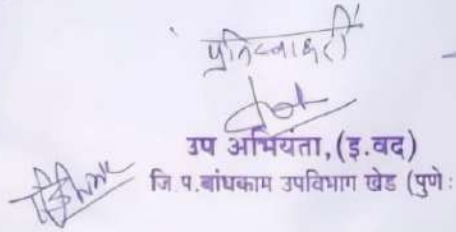 प्रतिस्वाक्षरी
उप अभियंता,(इ.वद)
जि प.बांधकाम उपविभाग खेड (पुणे: